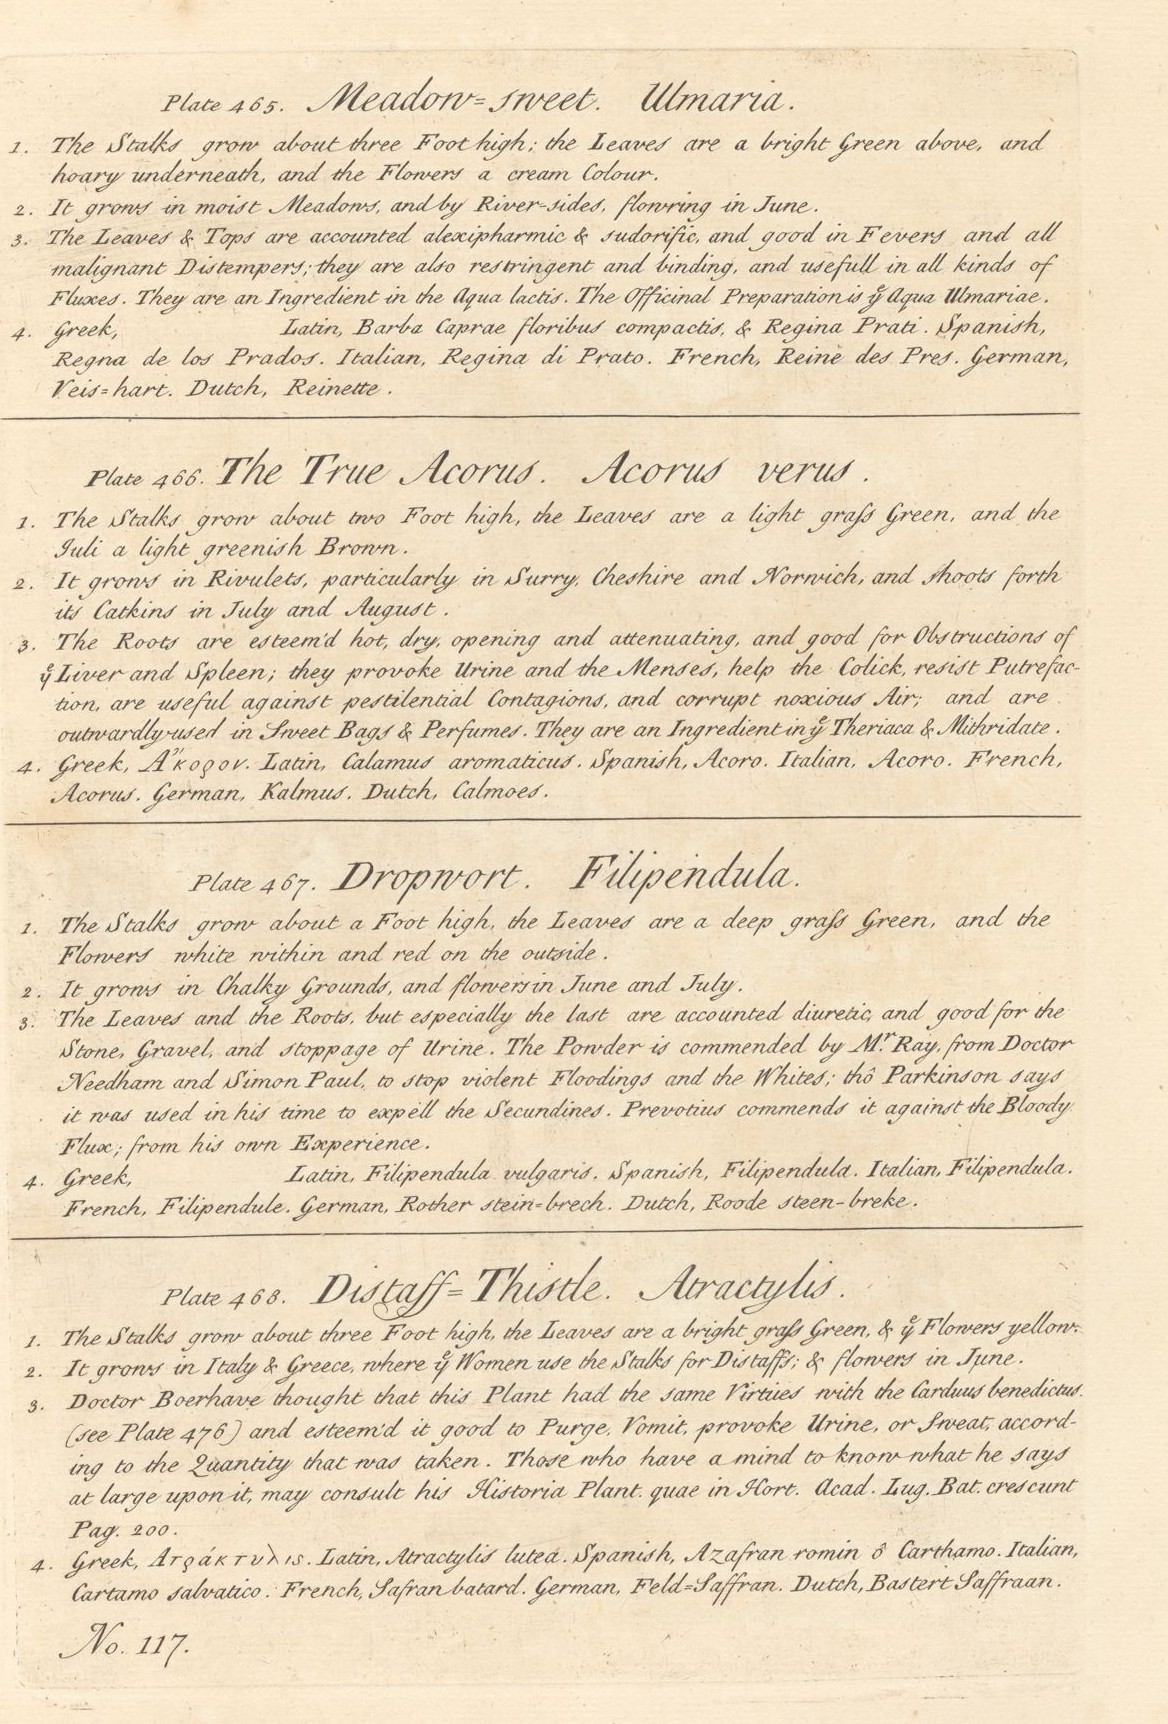 Plate 465. Meadow=sweet. Ulmaria.
1. The Stalks grow about three Foot high; the Leaves are a bright Green above, and
hoary underneath, and the Flowers a cream Colour.
2. It grows in moist Meadows, and by River-sides, flowring in June.
3. The Leaves & Tops are accounted alexipharmic & sudorific, and good in Fevers and all
malignant Distempers; they are also restringent and binding, and usefull in all kinds of
Fluxes. They are an Ingredient in the Aqua lactis. The Officinal Preparation is yͤ Aqua Ulmariae.
4. Greek, Latin, Barba Caprae floribus compactis, & Regina Prati. Spanish,
Regna de los Prados. Italian, Regina di Prato. French, Reine des Pres. German,
Veis=hart. Dutch, Reinette.
Plate 466. The True Acorus. Acorus verus.
1. The Stalks grow about two Foot high, the Leaves are a light graſs Green, and the
Juli a light greenish Brown.
2. It grows in Rivulets, particularly in Surry, Cheshire and Norwich, and shoots forth
its Catkins in July and August.
3. The Roots are esteem'd hot, dry, opening and attenuating, and good for Obstructions of
yͤ Liver and Spleen; they provoke Urine and the Menses, help the Colick, resist Putrefac-
tion, are useful against pestilential Contagions, and corrupt noxious Air; and are
outwardly used in Sweet Bags & Perfumes. They are an Ingredient in yͤ Theriaca & Mithridate.
4. Greek, Ἄκορον. Latin, Calamus aromaticus. Spanish, Acoro. Italian, Acoro. French,
Acorus. German, Kalmus. Dutch, Calmoes.
Plate 467. Dropwort. Filipendula.
1. The Stalks grow about a Foot high, the Leaves are a deep graſs Green, and the
Flowers white within and red on the outside.
2. It grows in Chalky Grounds, and flowers in June and July.
3. The Leaves and the Roots, but especially the last are accounted diuretic, and good for the
Stone, Gravel, and stoppage of Urine. The Powder is commended by Mʳ. Ray, from Doctor
Needham and Simon Paul, to stop violent Floodings and the Whites; thô Parkinson says
it was used in his time to expell the Secundines. Prevotius commends it against the Bloody
Flux; from his own Experience.
4. Greek, Latin, Filipendula vulgaris. Spanish, Filipendula. Italian, Filipendula.
French, Filipendule. German, Rother stein=brech. Dutch, Roode steen-breke.
Plate 468. Distaff=Thistle. Atractylis.
1. The Stalks grow about three Foot high, the Leaves are a bright graſs Green, & yͤ Flowers yellow.
2. It grows in Italy & Greece, where yͤ Women use the Stalks for Distaffs; & flowers in June.
3. Doctor Boerhave thought that this Plant had the same Virtues with the Carduus benedictus.
(see Plate 476) and esteem'd it good to Purge, Vomit, provoke Urine, or Sweat, accord-
ing to the Quantity that was taken. Those who have a mind to know what he says
at large upon it, may consult his Historia Plant. quae in Hort. Acad. Lug. Bat. crescunt
Pag. 200.
4. Greek, Ατράκτυλις. Latin, Atractylis lutea. Spanish, Azafran romin ô Carthamo. Italian,
Cartamo salvatico. French, Safran batard. German, Feld=Saffran. Dutch, Bastert Saffraan.
No. 117.